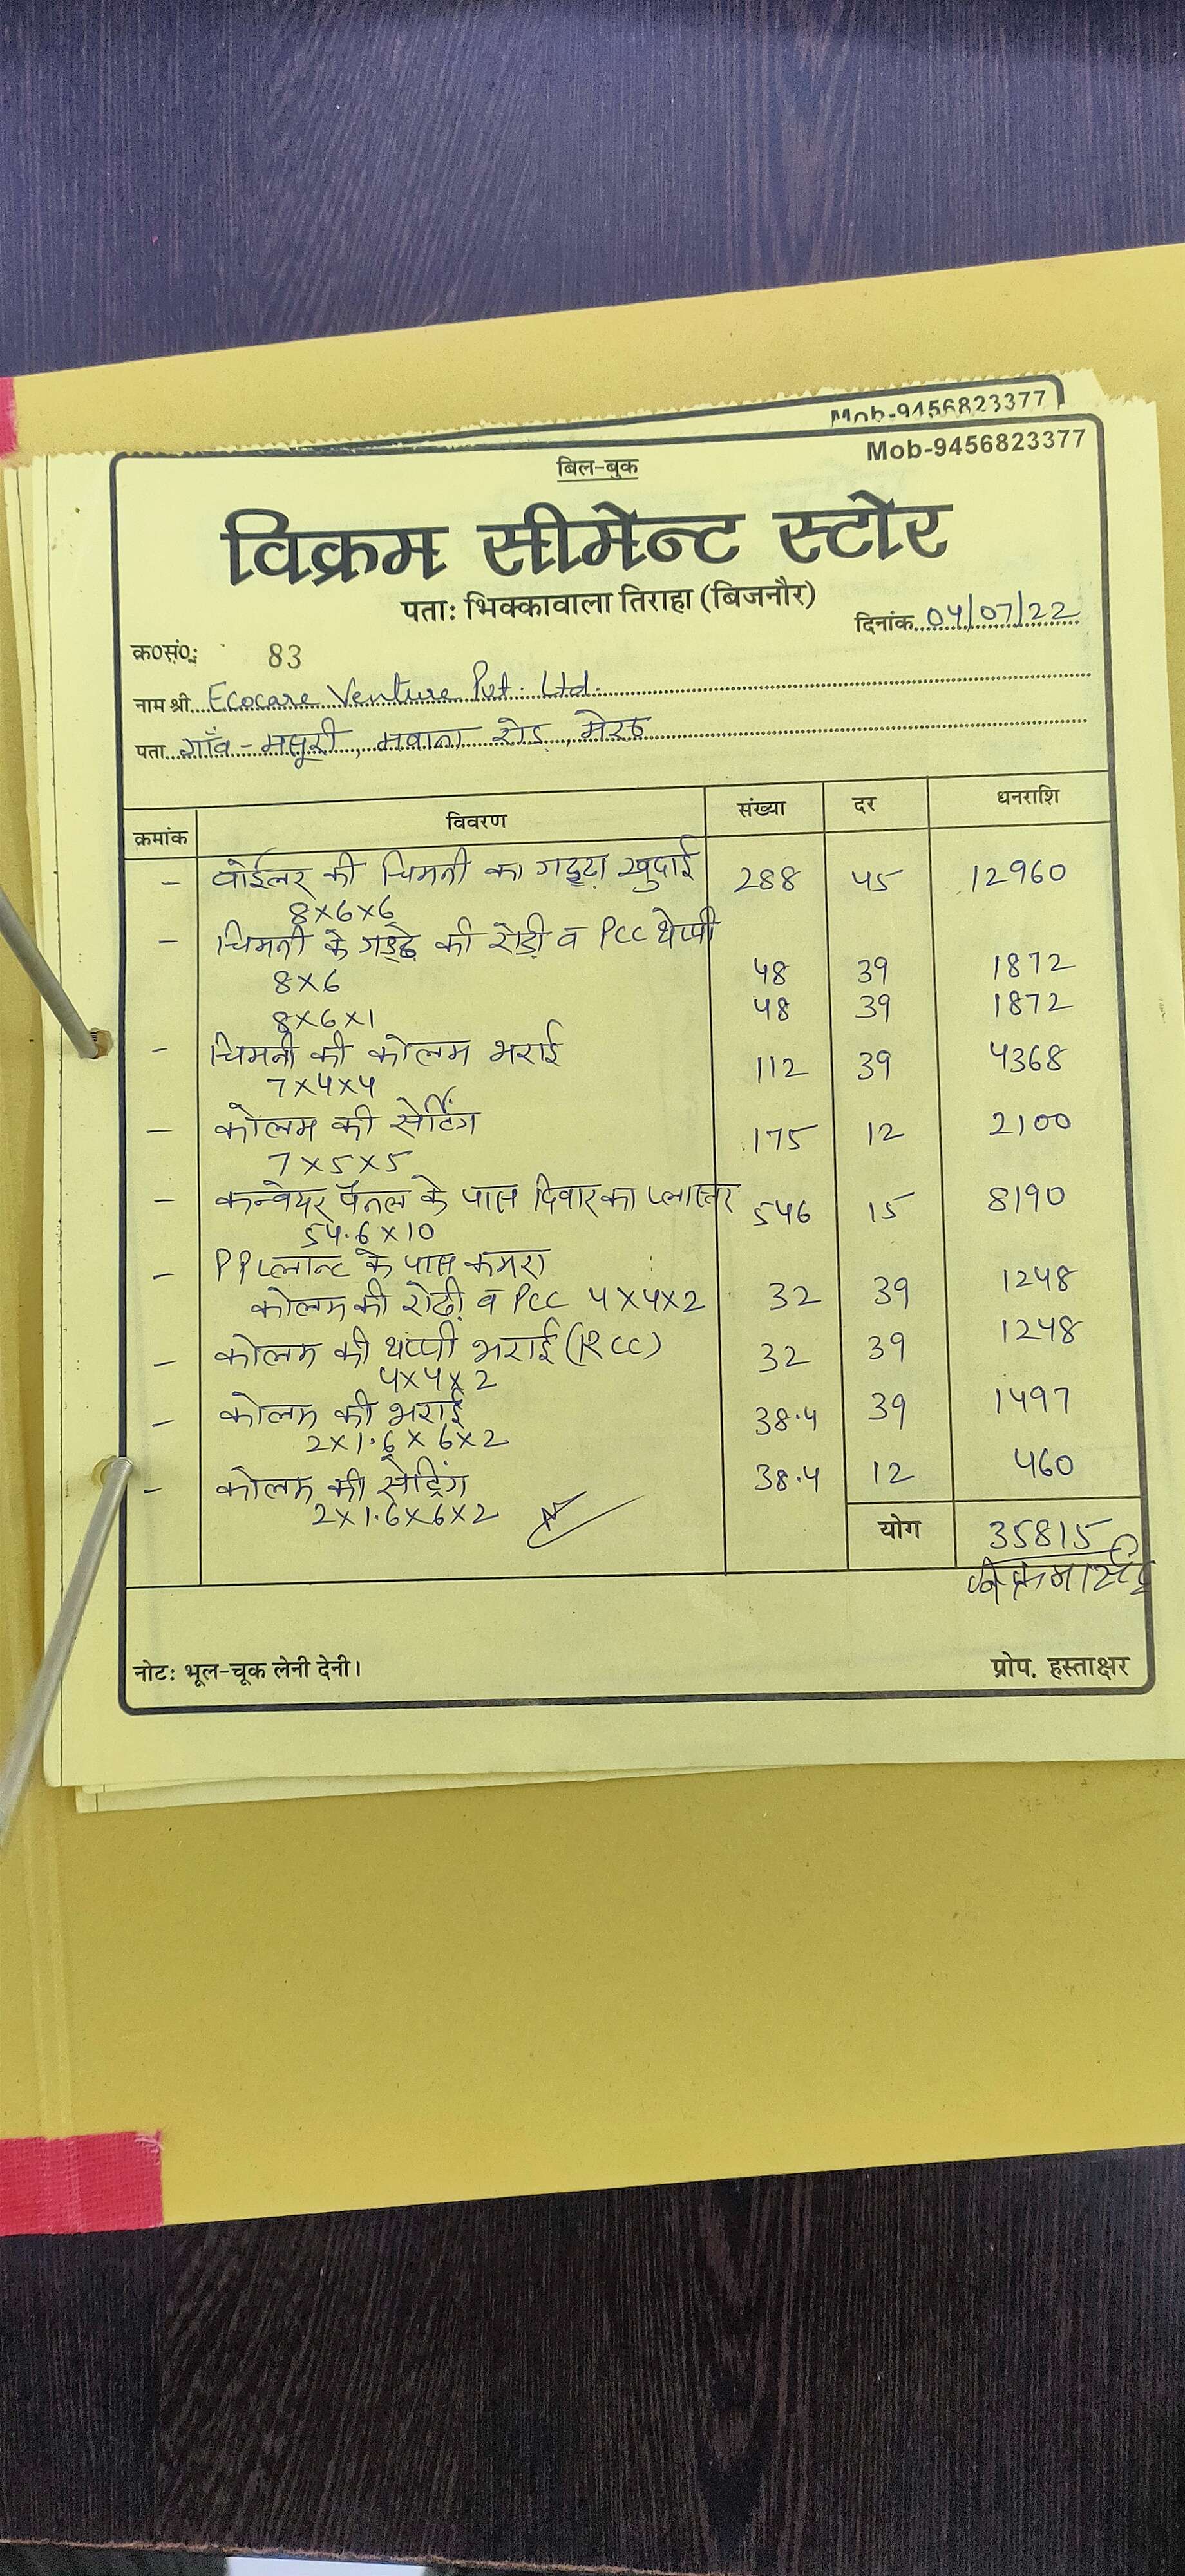 Mob-9456823377
Mob-9456823377
बिल-बुक
विक्रम सीमेन्ट स्टोर
पता: भिक्कावाला तिराहा (बिजनौर)
दिनांक 04/07/22
क्र०सं०: 83
नाम श्री Ecocare Venture Pvt. Ltd.
पता गाँव - मसूरी, मवाना रोड, मेरठ
क्रमांक विवरण संख्या दर धनराशि
- वोईलर की चिमनी का गड्ढा खुदाई 288 45 12960
8x6x6
- चिमनी के गड्ढे की रोड़ी व PCC थेप्पी
8x6 48 39 1872
8x6x1 48 39 1872
- चिमनी की कोलम भराई 112 39 4368
7x4x4
- कोलम की सेटिंग 175 12 2100
7x5x5
- कन्वेयर पैनल के पास दिवार का प्लास्तर 546 15 8190
54.6x10
- PP प्लान्ट के पास कमरा
कोलम की रोड़ी व PCC 4x4x2 32 39 1248
- कोलम की थप्पी भराई (RCC) 32 39 1248
4x4x2
- कोलम की भराई 38.4 39 1497
2x1.6x6x2
- कोलम की सेट्रिंग 38.4 12 460
2x1.6x6x2
योग 35815
नोट: भूल-चूक लेनी देनी।
प्रोप. हस्ताक्षर